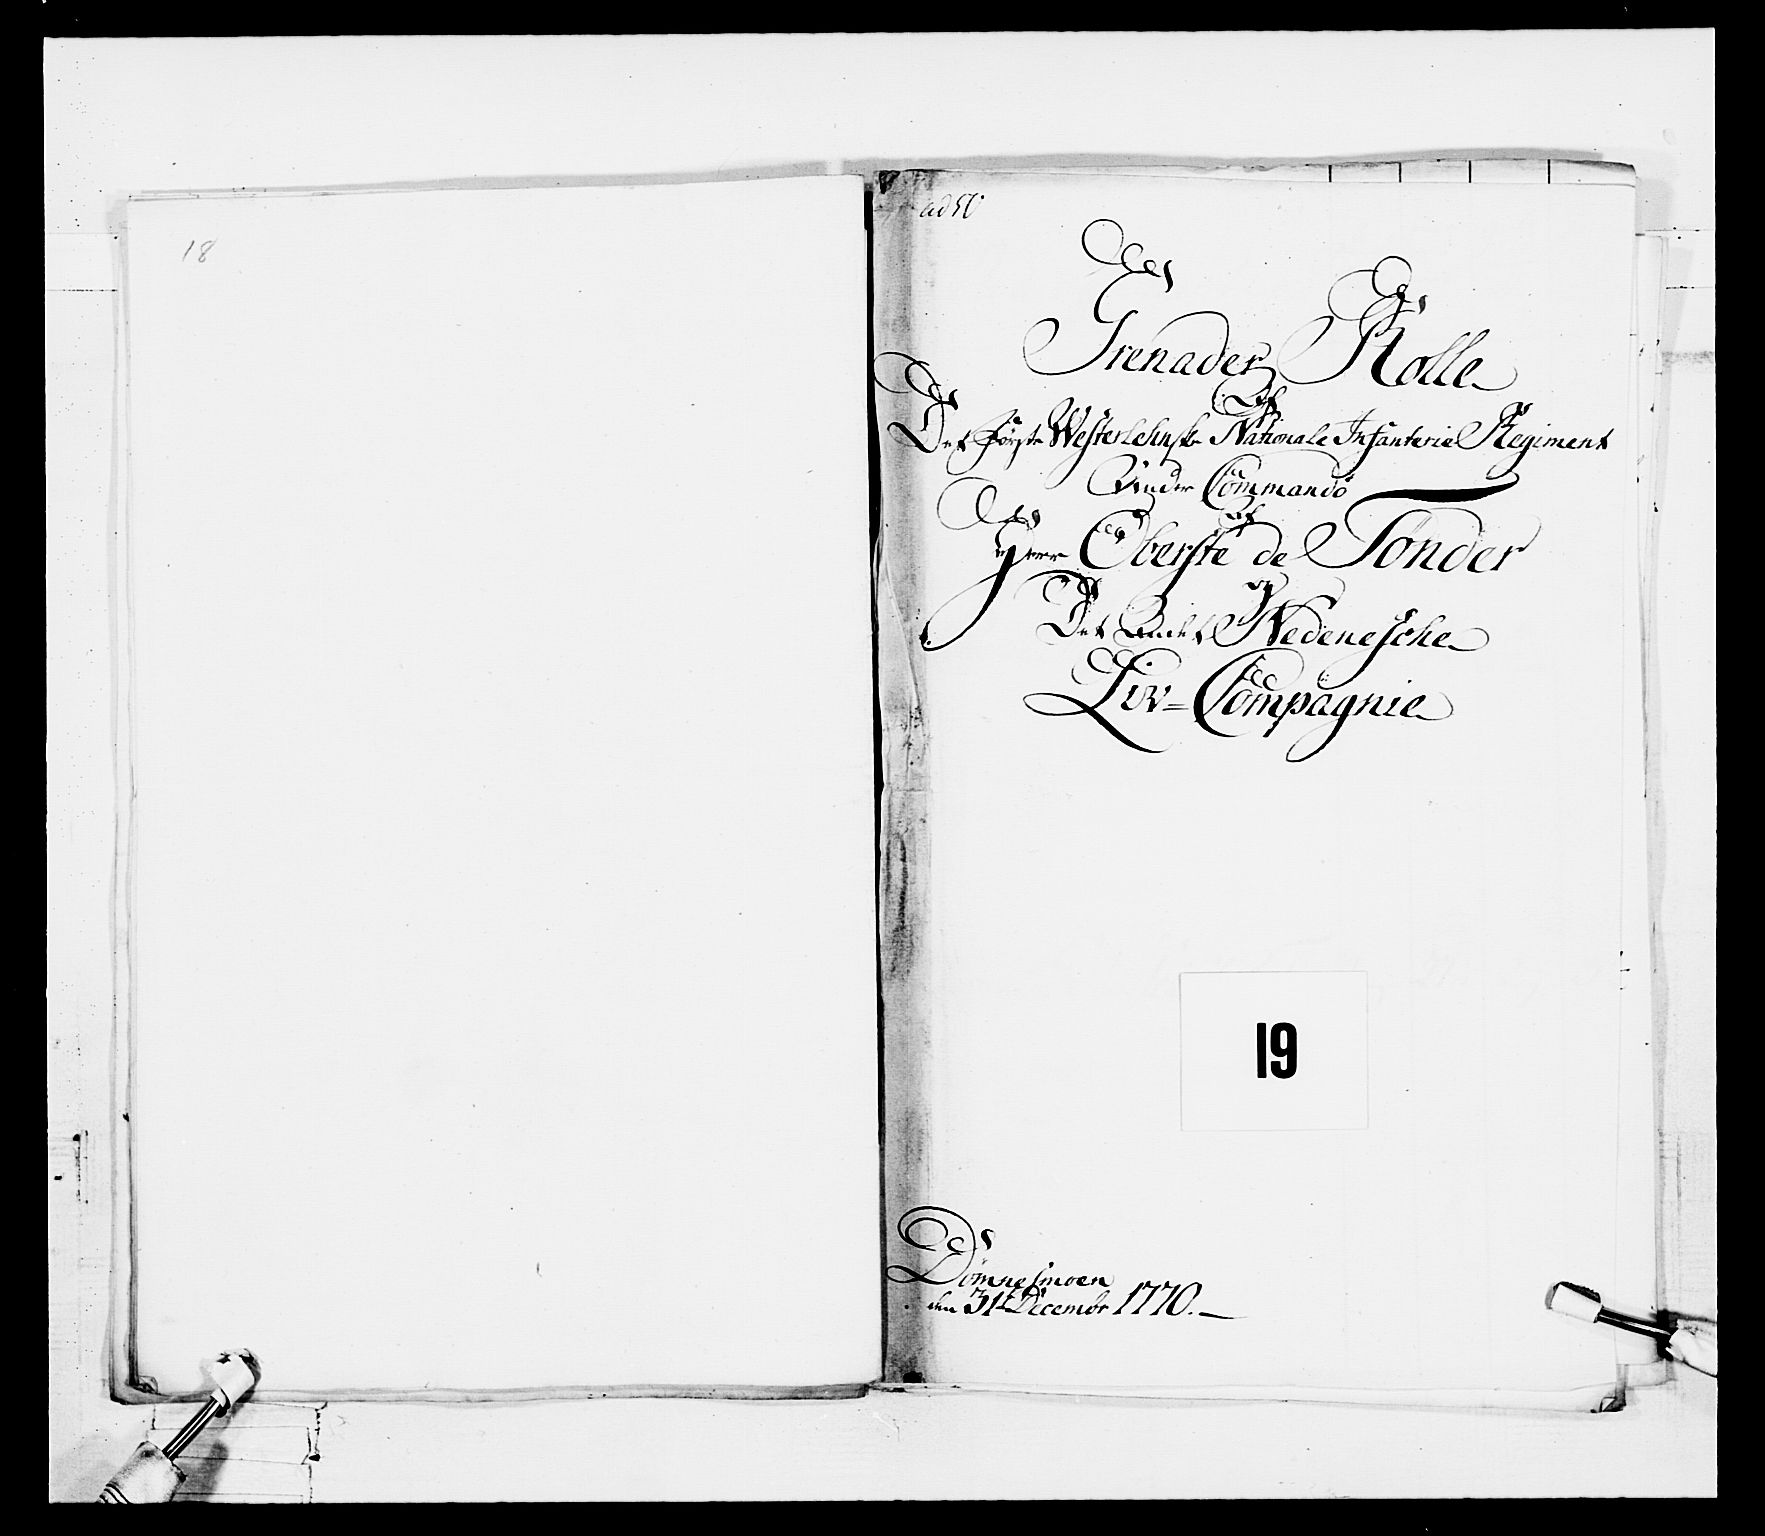 18
Grenader Rolle
Af
Det Første Westerlehnske Nationale Infanterie Regiment
Under Commando
af
Herr Oberste de Tønder
og
Det Andet Nedenesche
Liv=Compagnie
19
Dømnesmoen
den 31te Decembr 1770.